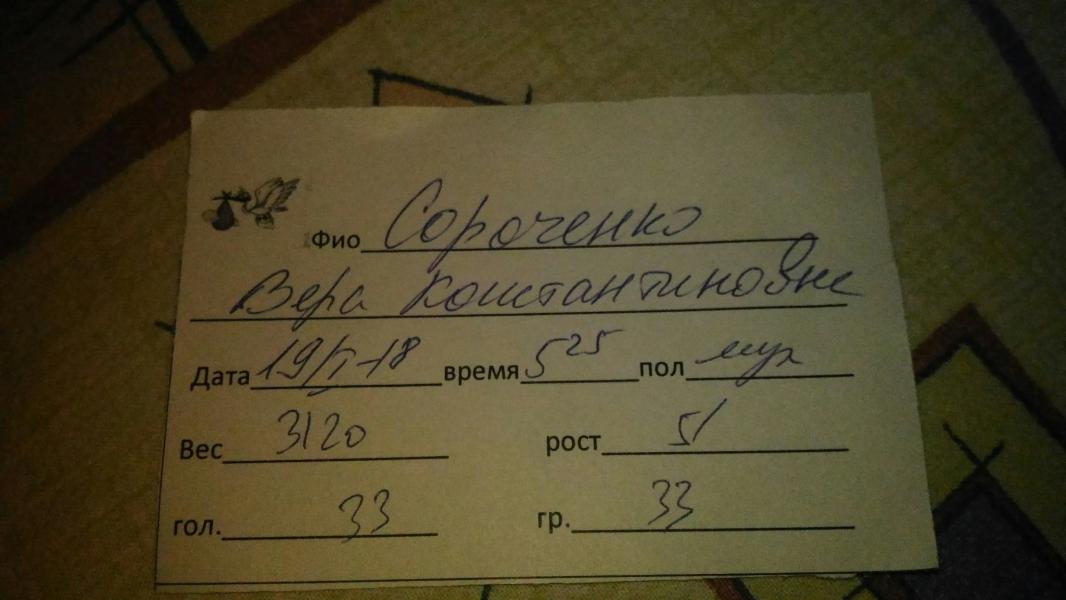 Фио Сороченко
Вера Константиновне
Дата 19/I-18 время 5 25 пол муж
Вес 3120 рост 51
гол. 33 гр. 33